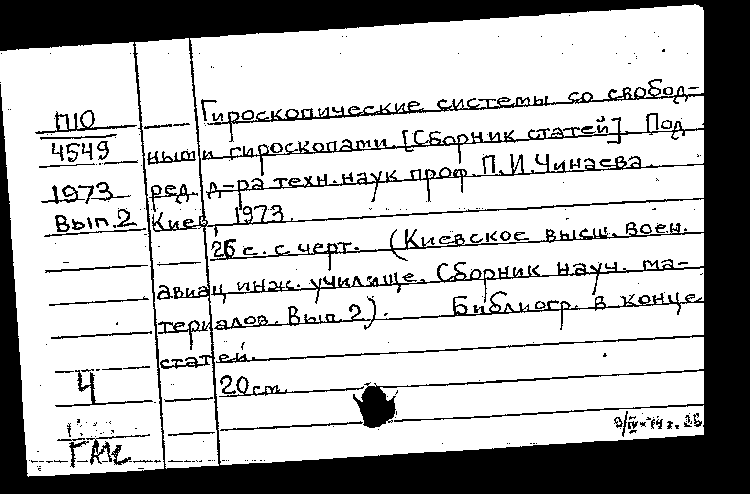 П10
4549
1973
Вып.2
Гироскопические системы со свобод-
ными гироскопами. [Сборник статей]. Под
ред. д-ра техн. наук проф. П.И.Чинаева.
Киев, 1973.
26 с. с черт. (Киевское высш. воен.
авиац инж. училище. Сборник науч. ма-
териалов. Вып. 2). Библиогр. в конце
статей.
20 см.
4